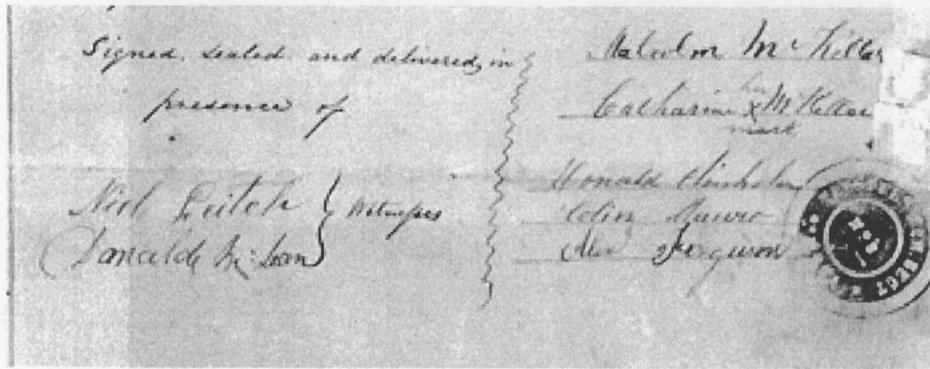 Signed, sealed and delivered, in
presence of
Neil Leitch
Donald McLean
Witnesses
Malcolm McKellar
Catharine her X McKellar
mark
Donald Chisholm
Colin Munro
Alex Ferguson